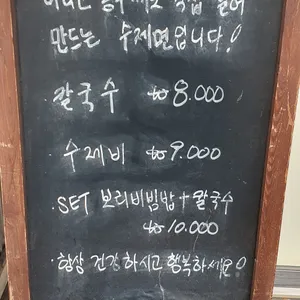 만드는 수제면입니다!
칼국수 ₩8.000
수제비 ₩9.000
·SET 보리비빔밥+칼국수
₩10.000
·항상 건강하시고 행복하세요!